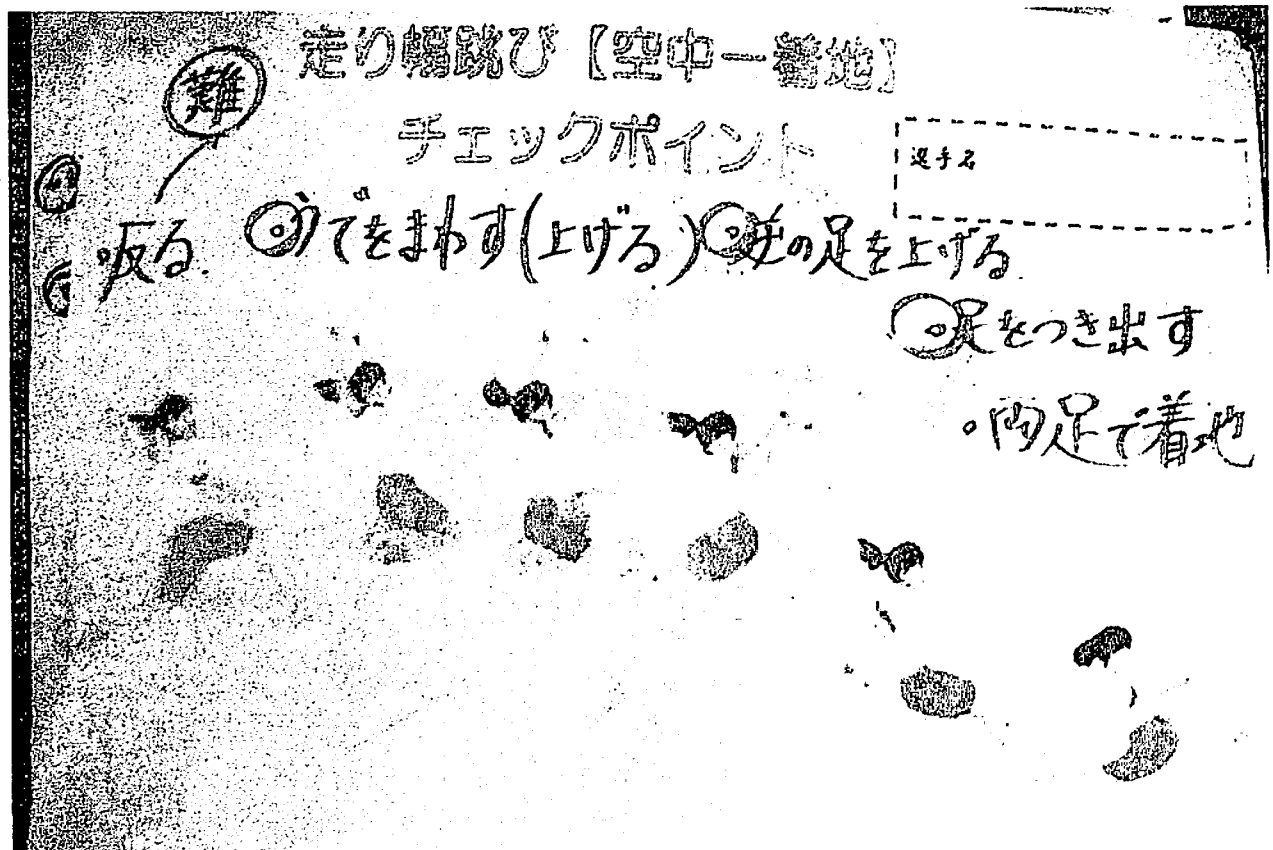 走り幅跳び【空中ー着地】
チェックポイント
難
選手名
・反る
・うでをまわす(上げる)
・逆の足を上げる
・足をつき出す
・両足で着地